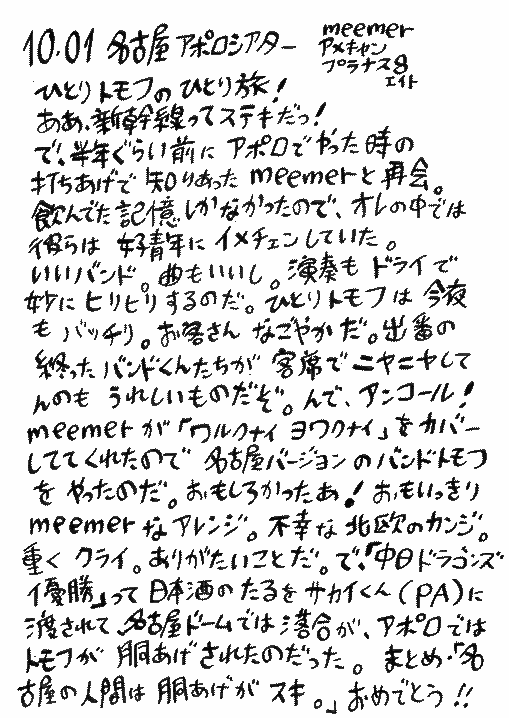 10.01 名古屋アポロシアター
meemer
アメキャン
プラナス8
エイト
ひとりトモフのひとり旅！
ああ、新幹線ってステキだっ！
で、半年ぐらい前に アポロでやった時の
打ちあげで 知りあった meemerと再会。
飲んでた記憶しかなかったので、オレの中では
彼らは 好青年に イメチェンしていた。
いいバンド。曲もいいし。演奏も ドライで
妙に ヒリヒリするのだ。ひとりトモフは 今夜
も バッチリ。お客さん なごやかだ。出番の
終ったバンドくんたちが 客席で ニヤニヤして
んのも うれしいものだぞ。んで、アンコール！
meemerが「ワルクナイ ヨワクナイ」をカバー
しててくれたので 名古屋バージョンのバンドトモフ
を やったのだ。おもしろかったあ！おもいっきり
meemerなアレンジ。不幸な北欧のカンジ。
重く クライ。ありがたいことだ。で、「中日ドラゴンズ
優勝」って 日本酒のたるを サカイくん(PA)に
渡されて、名古屋ドームでは 落合が、アポロでは
トモフが 胴あげされたのだった。 まとめ・「名
古屋の人間は 胴あげが スキ。」おめでとう!!